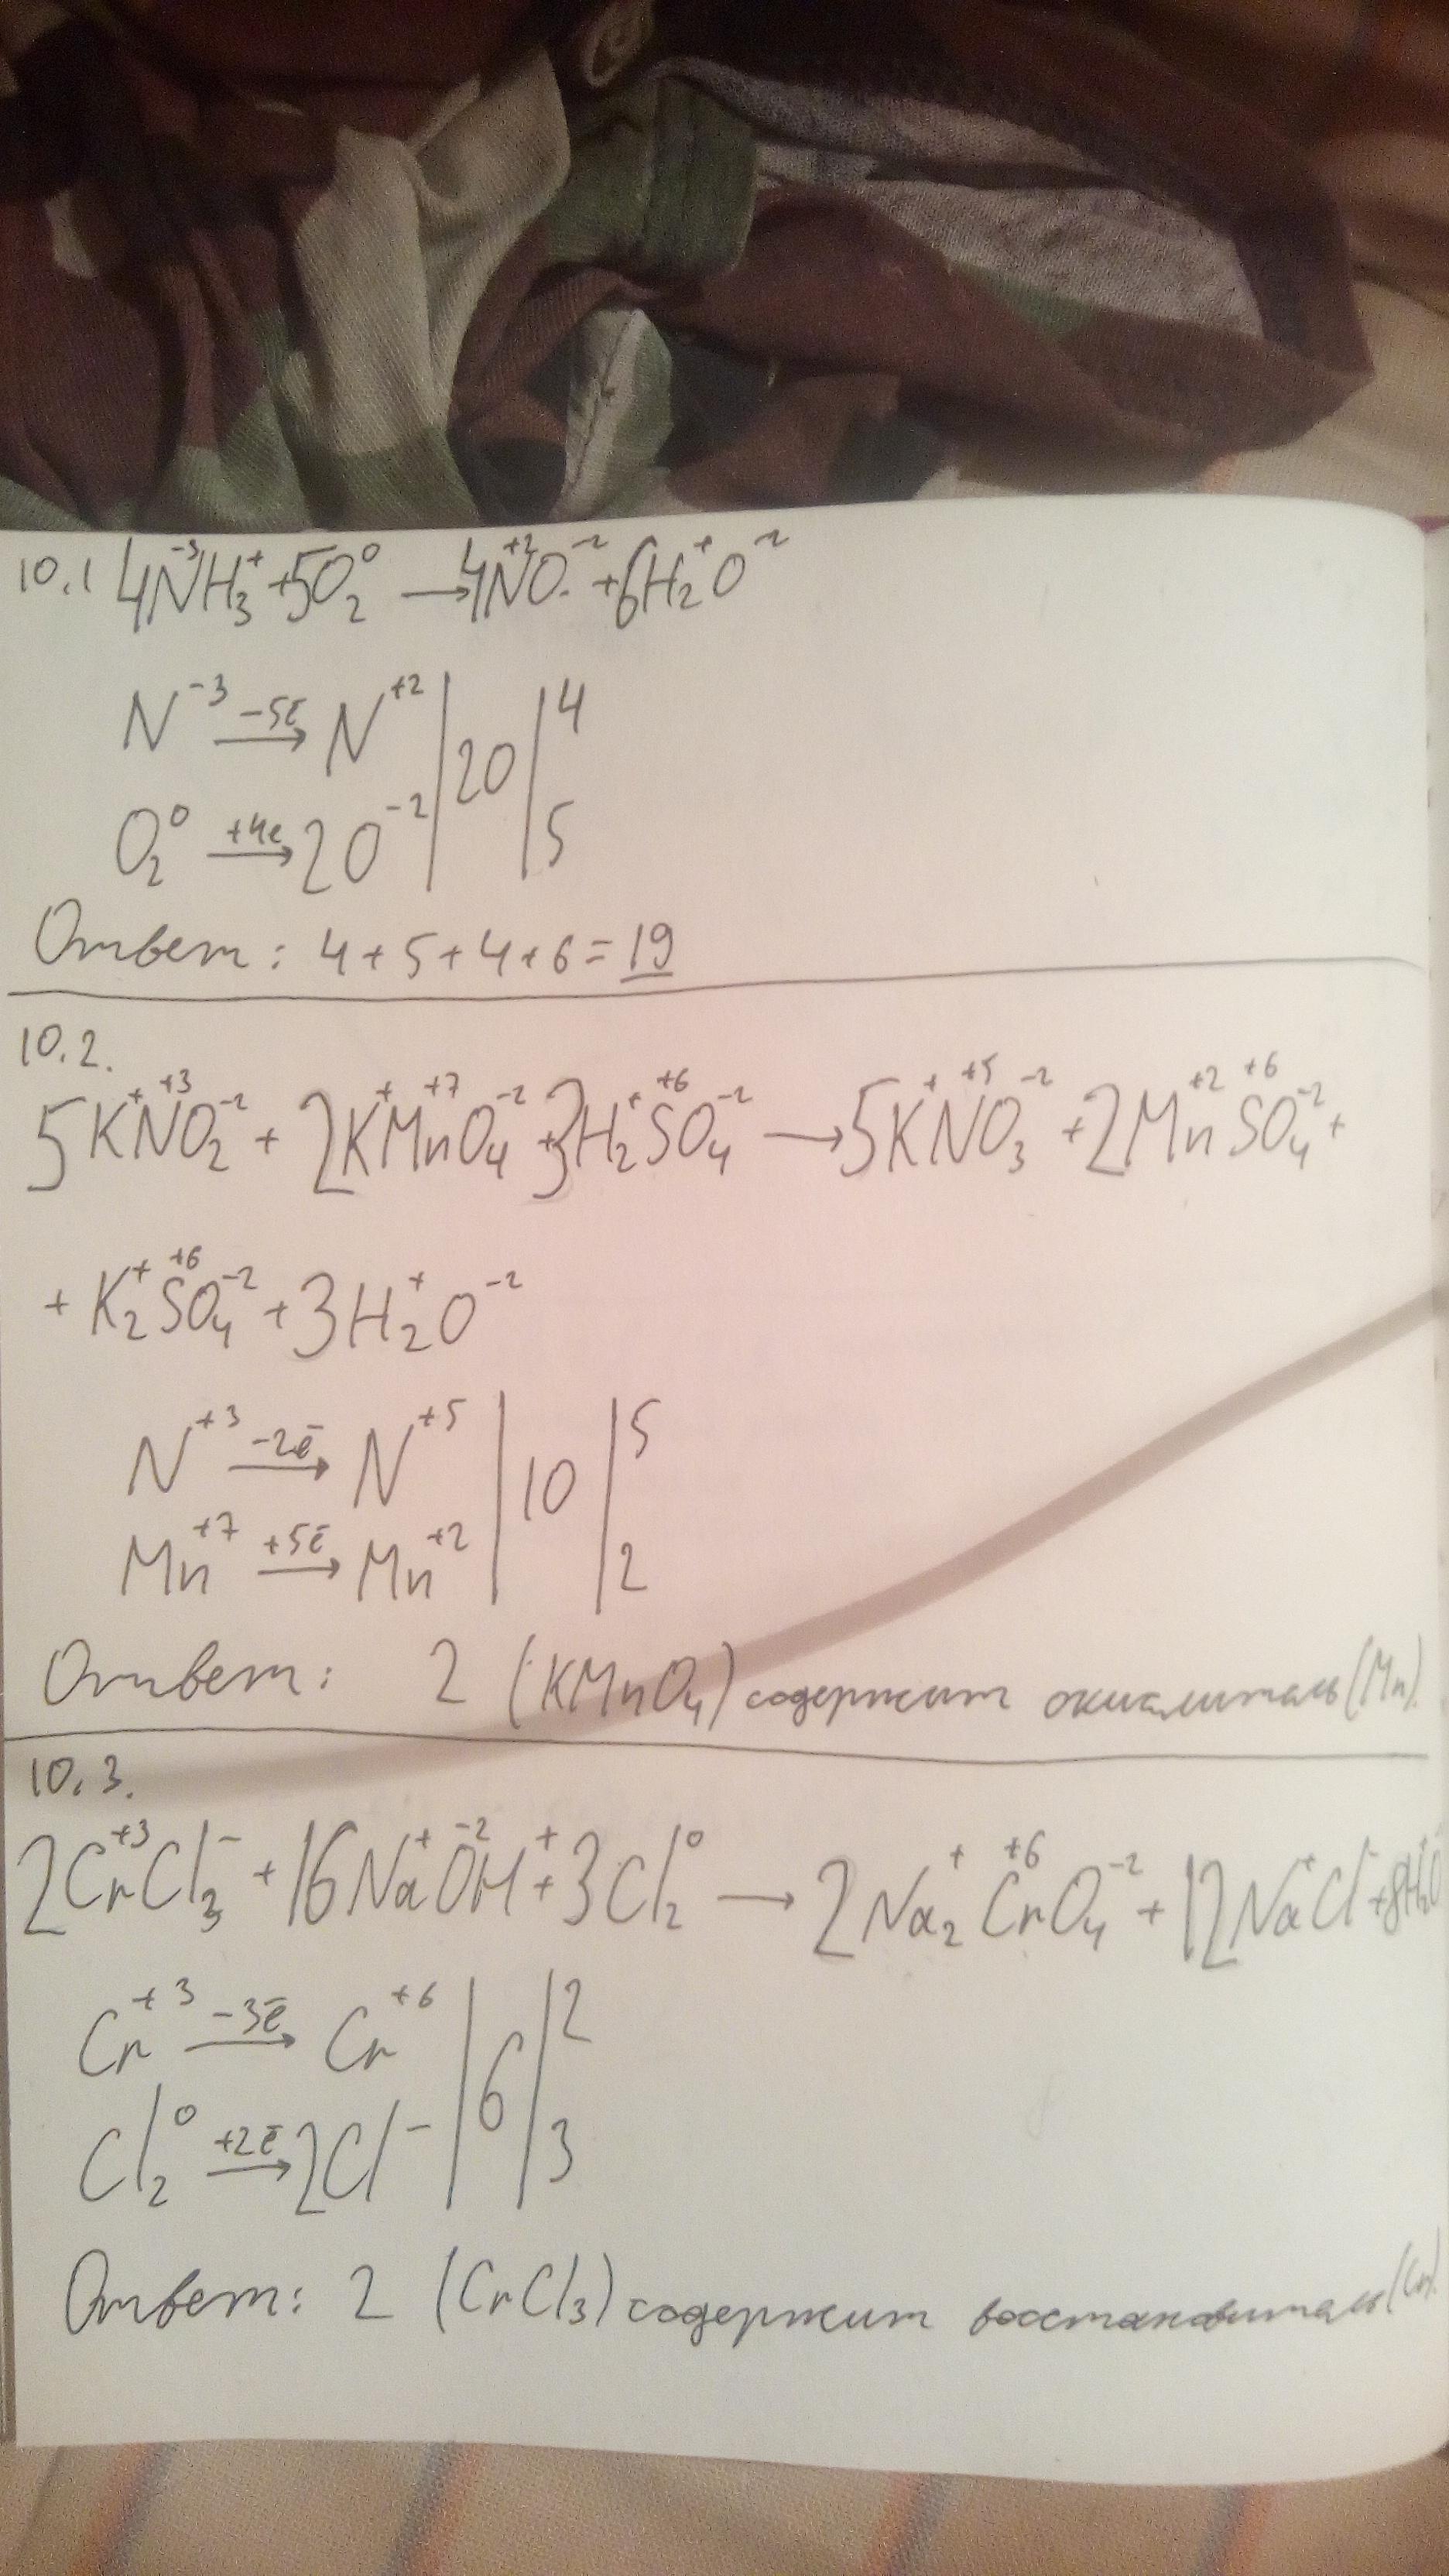 10.1 4N⁻³H₃⁺+5O₂⁰ → 4N⁺²O⁻²+6H₂⁺O⁻²
N⁻³ –5ē→ N⁺² | 20 | 4
O₂⁰ +4e→ 2O⁻² | | 5
Ответ: 4+5+4+6=19
10.2.
5K⁺N⁺³O₂⁻² + 2K⁺Mn⁺⁷O₄⁻² + 3H₂⁺S⁺⁶O₄⁻² → 5K⁺N⁺⁵O₃⁻² + 2Mn⁺²S⁺⁶O₄⁻² +
+ K₂⁺S⁺⁶O₄⁻² + 3H₂⁺O⁻²
N⁺³ –2ē→ N⁺⁵ | 10 | 5
Mn⁺⁷ +5ē→ Mn⁺² | | 2
Ответ: 2 (KMnO₄) содержит окислитель (Mn).
10.3.
2Cr⁺³Cl₃⁻ + 16Na⁺O⁻²H⁺ + 3Cl₂⁰ → 2Na₂⁺Cr⁺⁶O₄⁻² + 12Na⁺Cl⁻ + 8H₂⁺O
Cr⁺³ –3ē→ Cr⁺⁶ | 6 | 2
Cl₂⁰ +2ē→ 2Cl⁻ | | 3
Ответ: 2 (CrCl₃) содержит восстановитель (Cr).